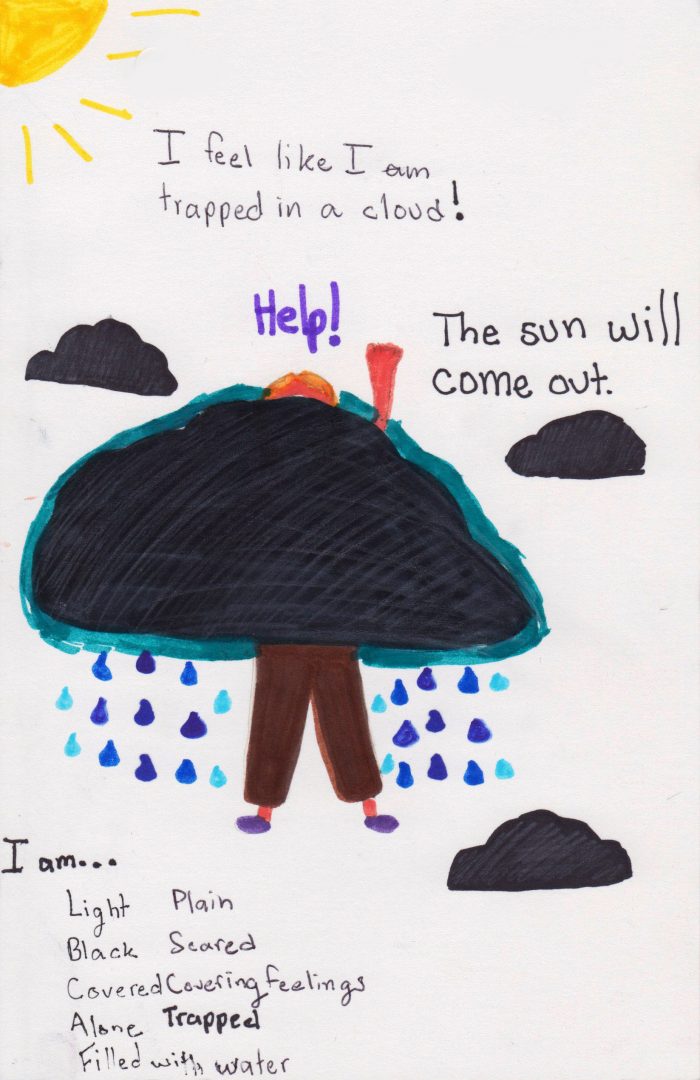 I feel like I am
trapped in a cloud!
Help!
The sun will
come out.
I am...
Light Plain
Black Scared
Covered Covering feelings
Alone Trapped
Filled with water